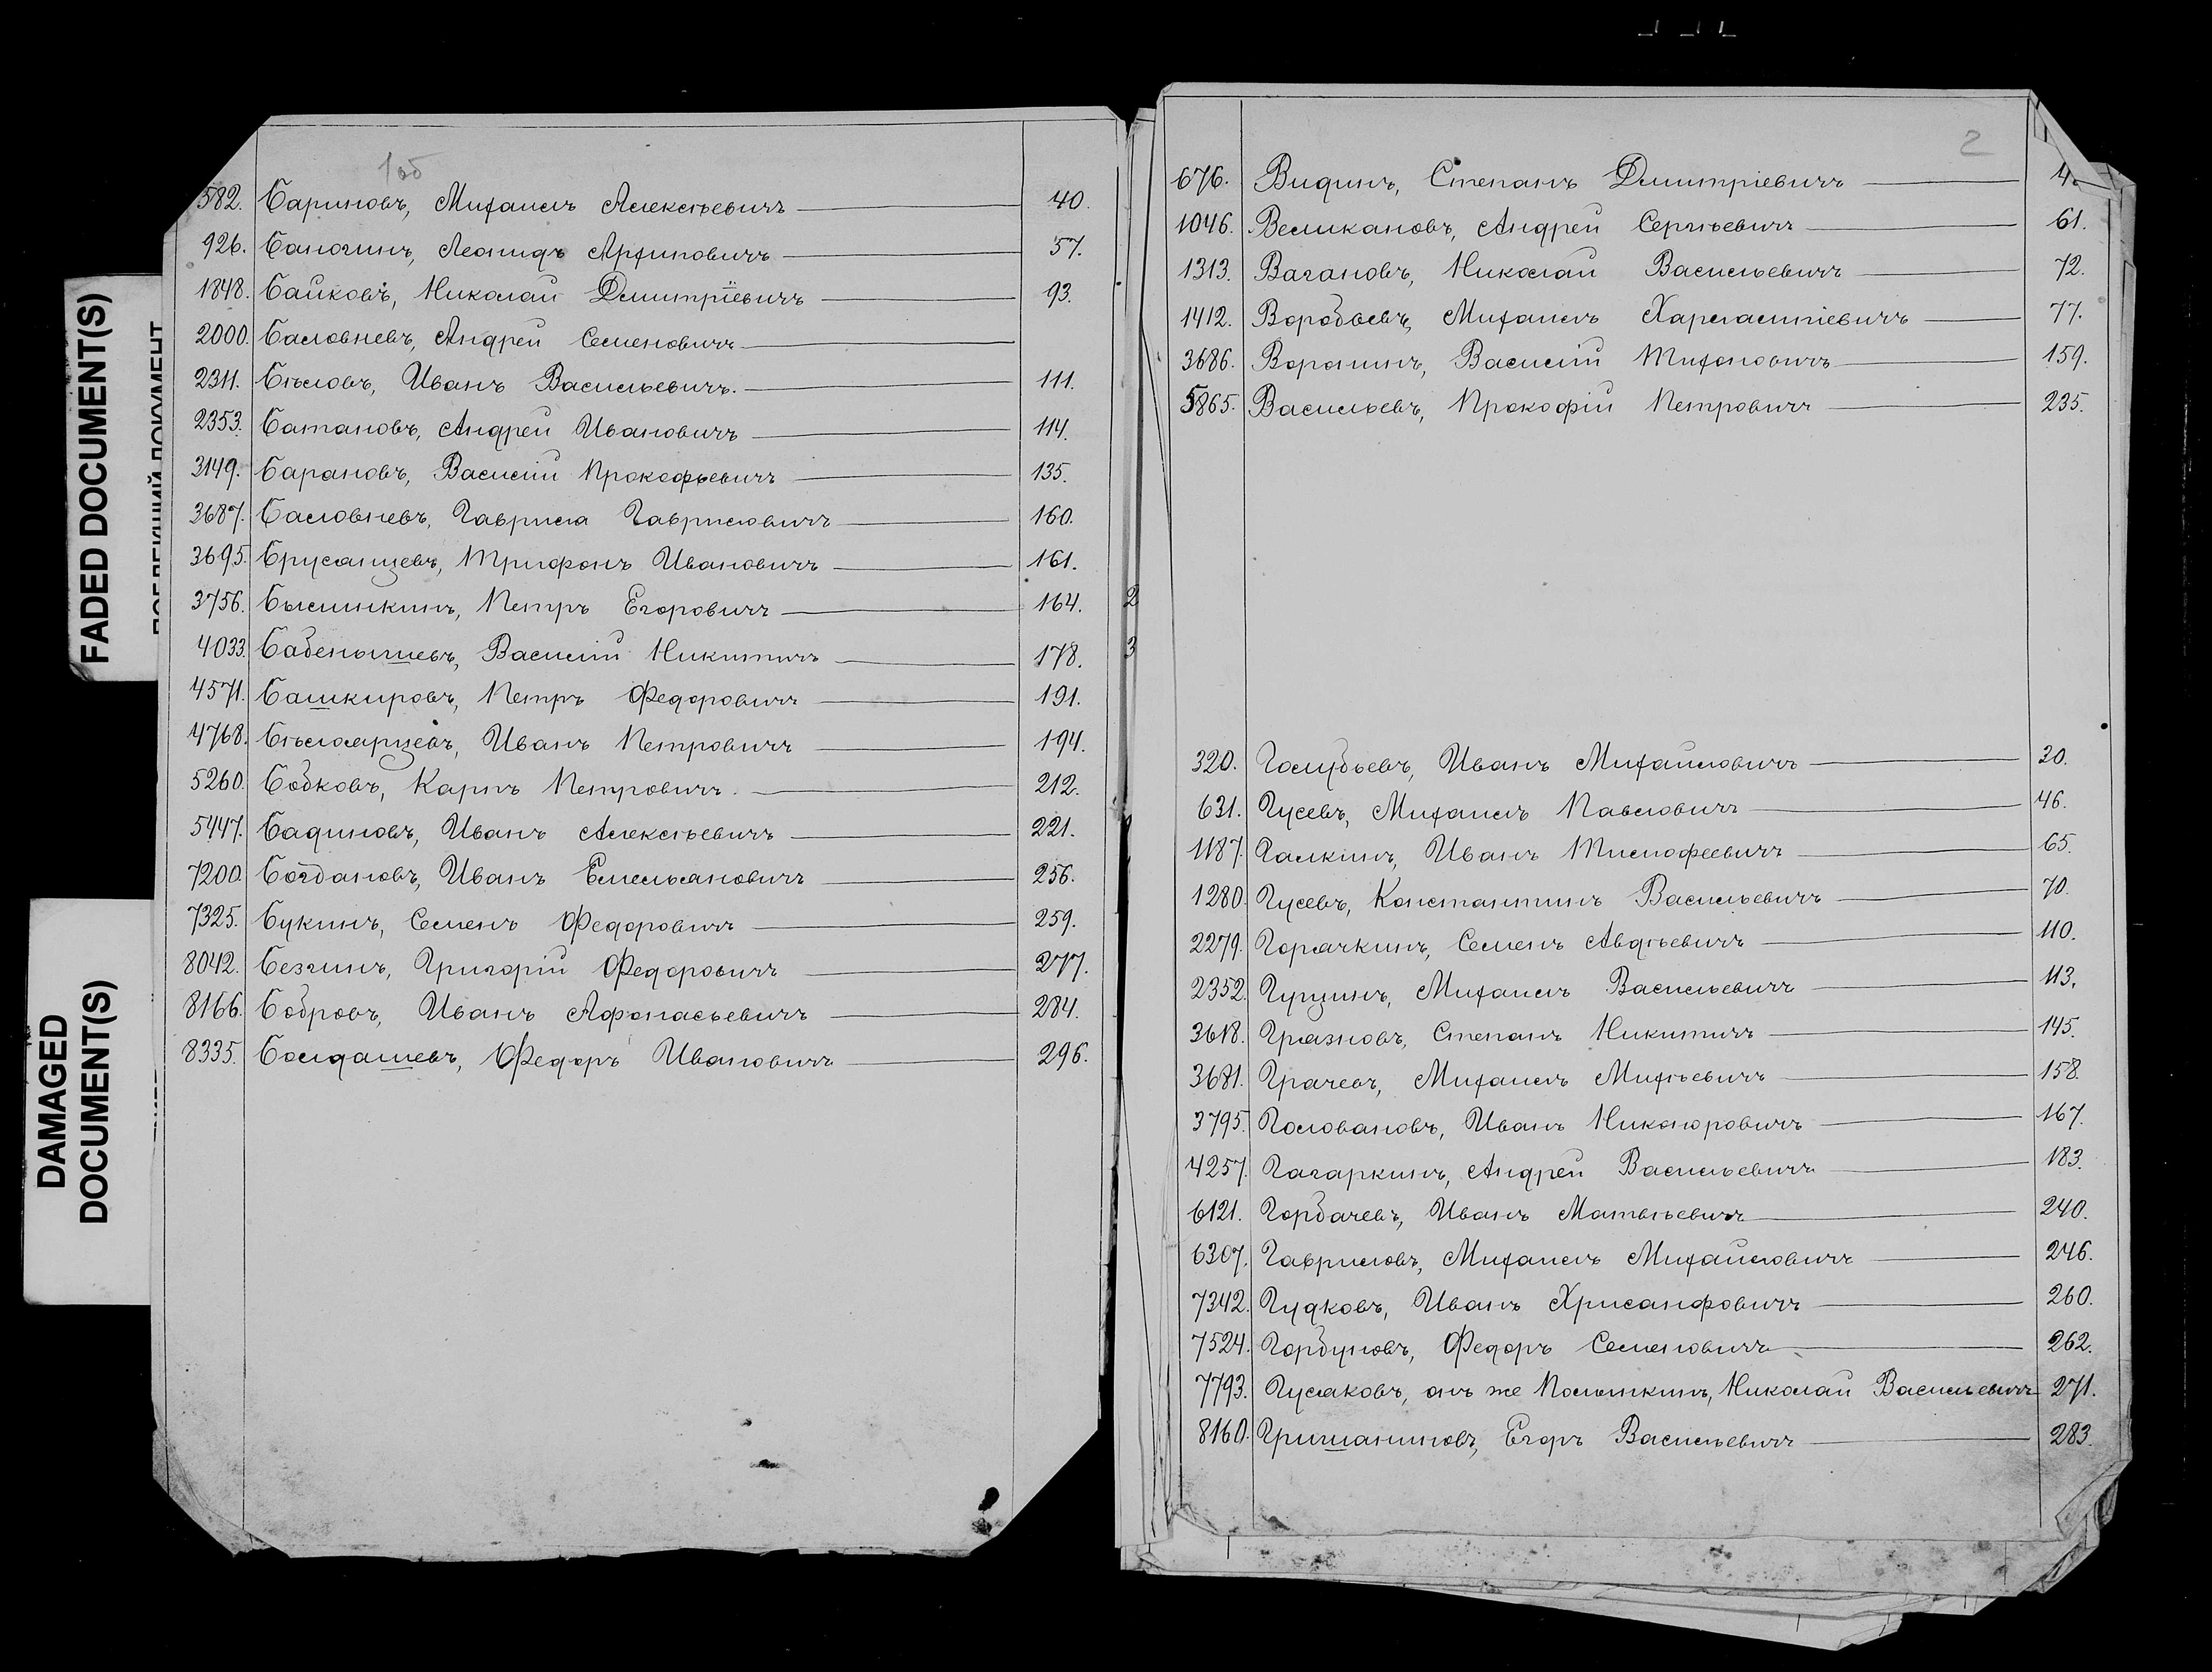 FADED DOCUMENT(S)
DAMAGED
DOCUMENT(S)
1об
582. Бариновъ, Михаилъ Алексѣевичъ 40.
926. Леонидъ 57.
1848. Байковъ, Николай Дмитріевичъ 93.
2000. Басловневъ, Андрей Семеновичъ
2311. Бѣловъ, Иванъ Васильевичъ. 111.
2353. Батановъ, Андрей Ивановичъ 114.
3149. Барановъ, Василій Прокофьевичъ 135.
3687. Басловневъ, Гаврила Гавриловичъ 160.
3695. Брусянцевъ, Трифонъ Ивановичъ 161.
3756. Былинкинъ, Петръ Егоровичъ 164.
4033. Бабенышевъ, Василій Никитичъ 178.
4571. Башкировъ, Петръ Федоровичъ 191.
4768. Бѣлоярцевъ, Иванъ Петровичъ 194.
5260. Бобковъ, Карпъ Петровичъ. 212.
5447. Бадиновъ, Иванъ Алексѣевичъ 221.
7200. Богдановъ, Иванъ Емельяновичъ 256.
7325. Букинъ, Семенъ Федоровичъ 259.
8042. Безгинъ, Григорій Федоровичъ 277.
8166. Бобровъ, Иванъ Афонасьевичъ 284.
8335. Болдашевъ, Федоръ Ивановичъ 296.
2
3
2
676. Видинъ, Степанъ Дмитріевичъ
1046. Великановъ, Андрей Сергѣевичъ 61.
1313. Вагановъ, Николай Васильевичъ 72.
1412. Воробьевъ, Михаилъ Харлампіевичъ 77.
3686. Воронинъ, Василій Тихоновичъ 159.
5865. Васильевъ, Прокофій Петровичъ 235.
320. Голубьевъ, Иванъ Михайловичъ 30.
631. Гусевъ, Михаилъ Павловичъ 46.
1187. Галкинъ, Иванъ Тимофеевичъ 65.
1280. Гусевъ, Константинъ Васильевичъ 70.
2279. Горячкинъ, Семенъ Авдѣевичъ 110.
2352. Гущинъ, Михаилъ Васильевичъ 113.
3618. Грязновъ, Степанъ Никитичъ 145.
3681. Грачевъ, Михаилъ Михѣевичъ 158.
3795. Головановъ, Иванъ Никоноровичъ 167.
4257. Гагаркинъ, Андрей Васильевичъ 183.
6121. Горбачевъ, Иванъ Матвѣевичъ 240.
6307. Гавриловъ, Михаилъ Михайловичъ 246.
7342. Гудковъ, Иванъ Хрисанфовичъ 260.
7524. Горбуновъ, Федоръ Семеновичъ 262.
7793. Гусаковъ, онъ же Полынкинъ, Николай Васильевичъ 271.
8160. Гришаниновъ, Егоръ Васильевичъ 283.